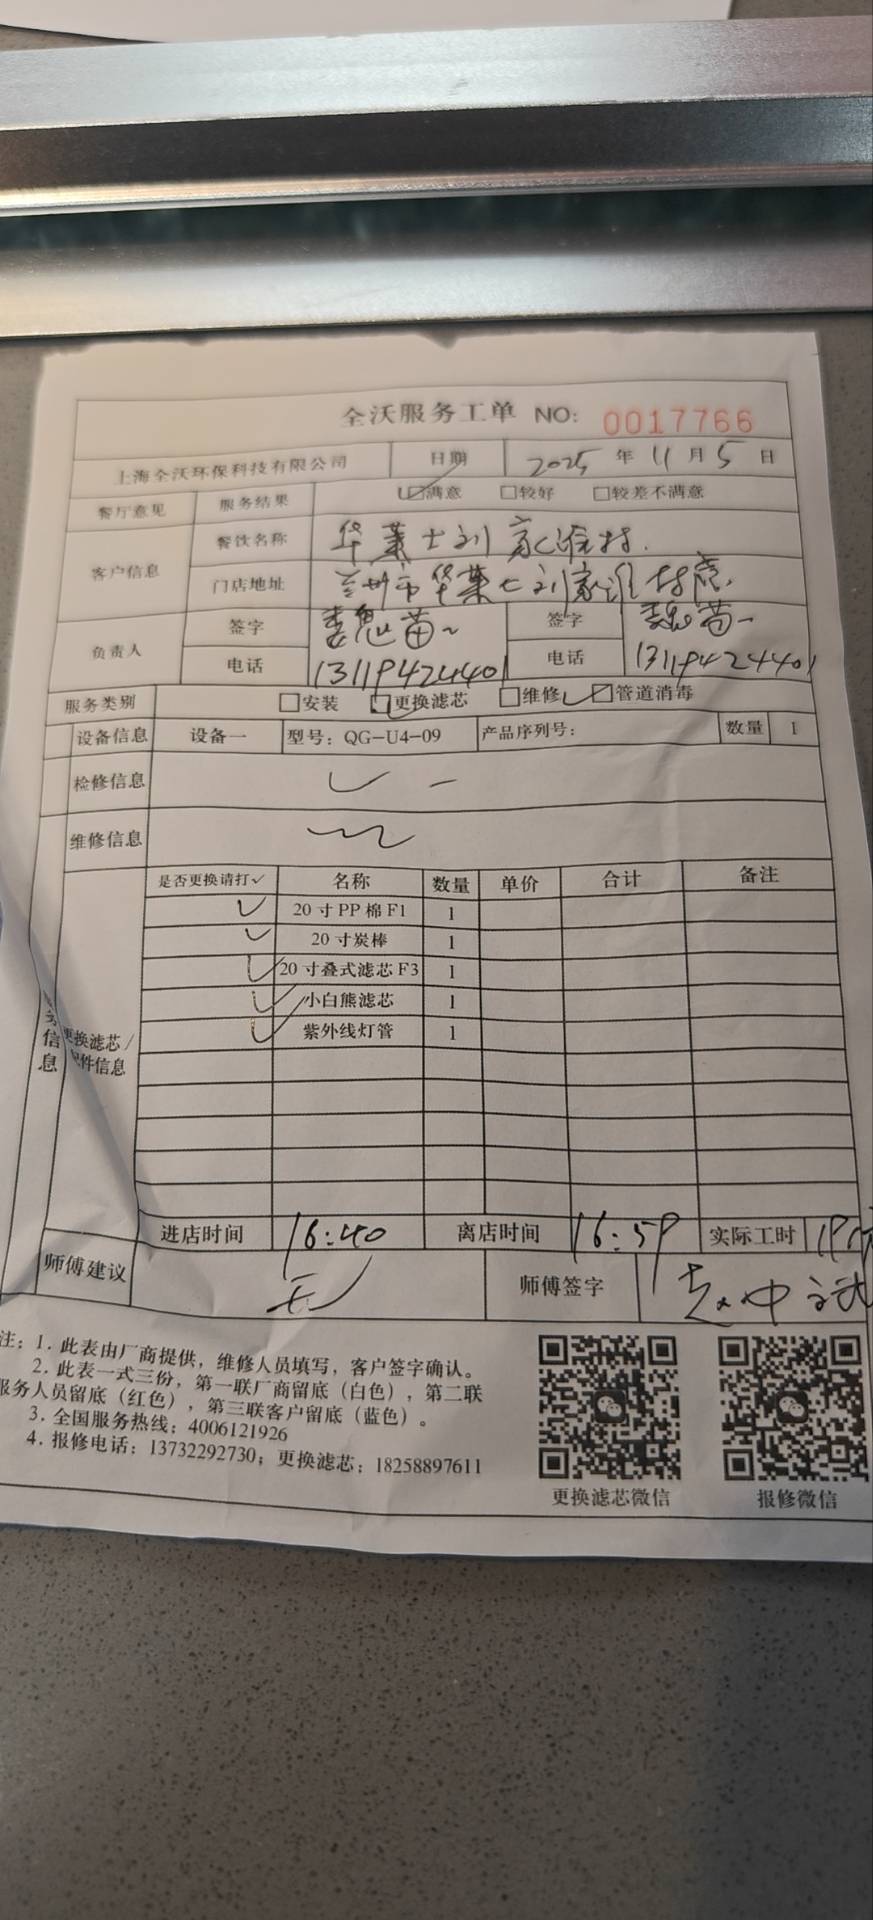 全沃服务工单 NO: 0017766
上海全沃环保科技有限公司 日期 2025 年 11 月 5 日
餐厅意见 服务结果 ☑满意 □较好 □较差不满意
客户信息 餐饮名称 华莱士刘家滩村.
门店地址 兰州市华莱士刘家滩村店
负责人 签字 签字
电话 13119424401 电话 13119424401
服务类别 □安装 ☑更换滤芯 □维修 ☑管道消毒
设备信息 设备一 型号: QG-U4-09 产品序列号: 数量 1
检修信息
维修信息
服务信息 更换滤芯/配件信息
是否更换请打✓ 名称 数量 单价 合计 备注
✓ 20 寸 PP 棉 F1 1
✓ 20 寸炭棒 1
✓ 20 寸叠式滤芯 F3 1
✓ 小白熊滤芯 1
✓ 紫外线灯管 1
进店时间 16:40 离店时间 16:59 实际工时
师傅建议 无 师傅签字
注: 1. 此表由厂商提供，维修人员填写，客户签字确认。
2. 此表一式三份，第一联厂商留底（白色），第二联
服务人员留底（红色），第三联客户留底（蓝色）。
3. 全国服务热线: 4006121926
4. 报修电话: 13732292730; 更换滤芯: 18258897611
更换滤芯微信 报修微信